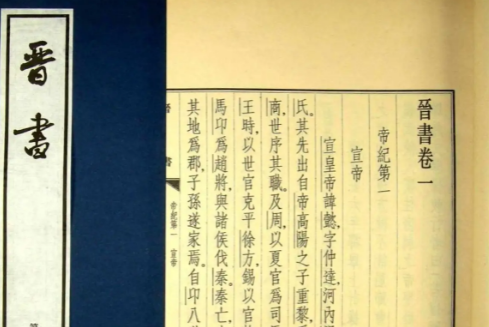 晋書
晉書卷一
帝紀第一
宣帝
宣皇帝諱懿,字仲達,河內
氏。其先出自帝高陽之子重黎,
商,世序其職。及周,以夏官爲司
王時,以世官克平徐方,錫以官
馬卬爲趙將,與諸侯伐秦。秦亡,
其地爲郡,子孫遂家焉。自卬八
書
帝紀第一 宣帝